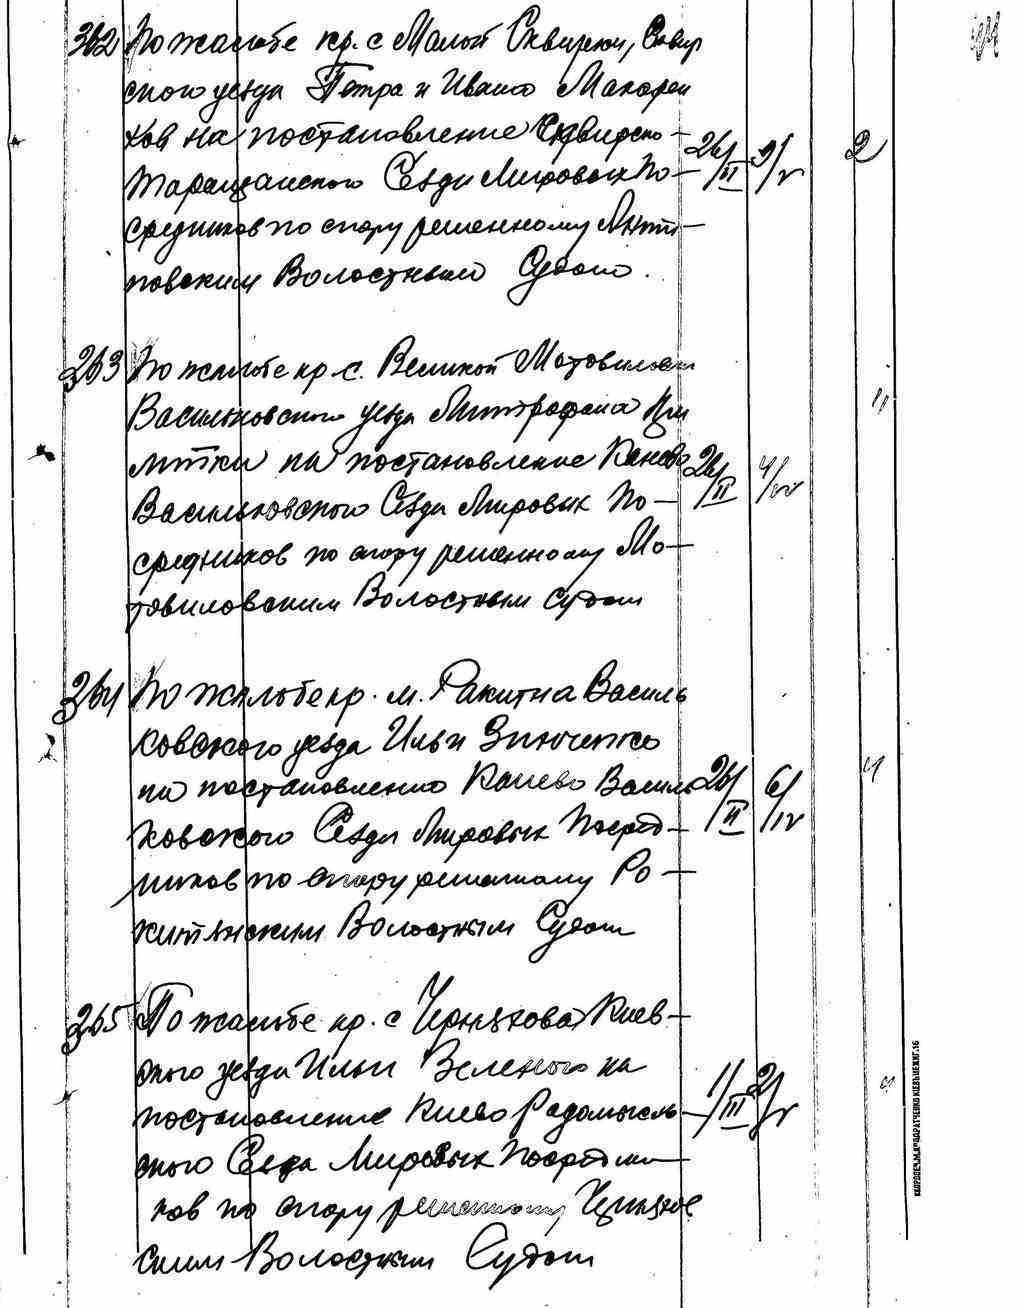 362 По жалобе кр. с Малой Сквирки, Сквир
ского уезда Петра и Ивана Макарен
ков на постановление Сквирско-
Таращанского Сезда Мировых По- 26/II 2/V 2
средников по спору решенному Анто-
новским Волостным Судом.
363 По жалобе кр с. Великой Мотовиловки
Васильковского уезда Митрофана 11
на постановление Канево 26/II 4/IV
Васильковского Сезда Мировых По-
средников по спору решенному Мо-
товиловским Волостным судом
364 По жалобе кр. м. Ракитна Василь
ковского уезда Ильи Зинченко
на постановление Канево Василь 26/II 6/IV 4
ковского Сезда Мировых Посред-
ников по спору решенному Ро-
китянским Волостным Судом
365 По жалобе кр. с Черняхова Киев-
ского уезда Ильи Зеленого на
постановление Киево Радомысль- 1/III 2/V
ского Сезда Мировых Посредни
ков по спору решенному Черняхов
ским Волостным Судом